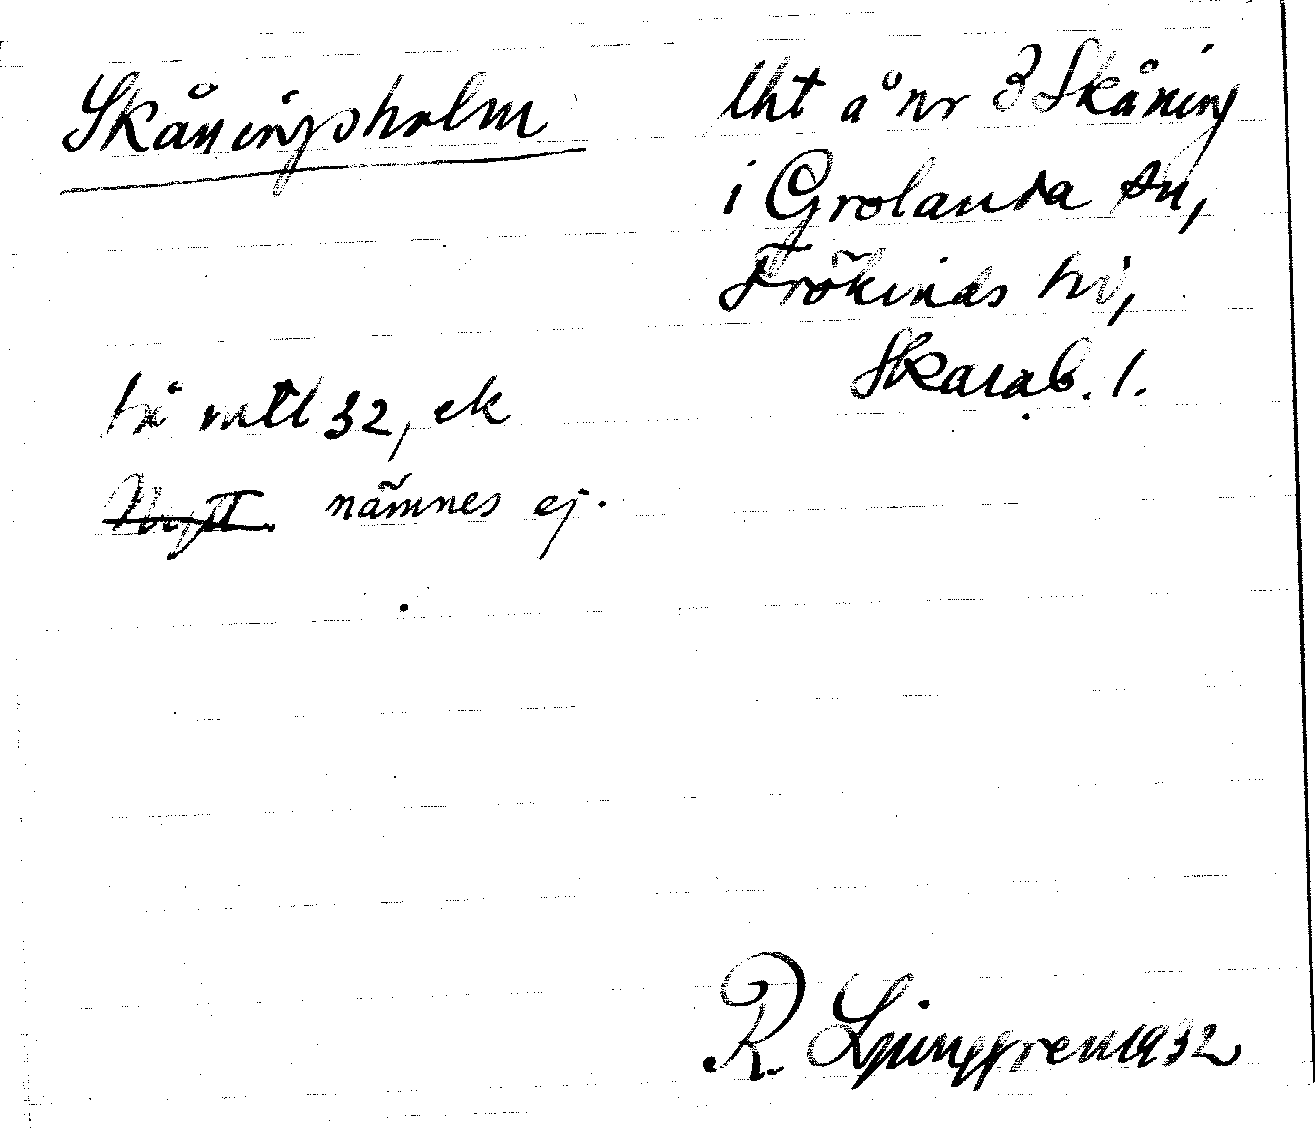 Skåningsholm
Lht å nr 3 Skåning
i Grolanda sn,
Frökinds hd,
Skarab. l.
på mtl 32, ek
Nytt. nämnes ej.
R. Ljunggren 1932